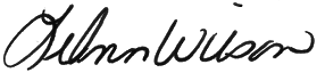 LeAnn Wilson